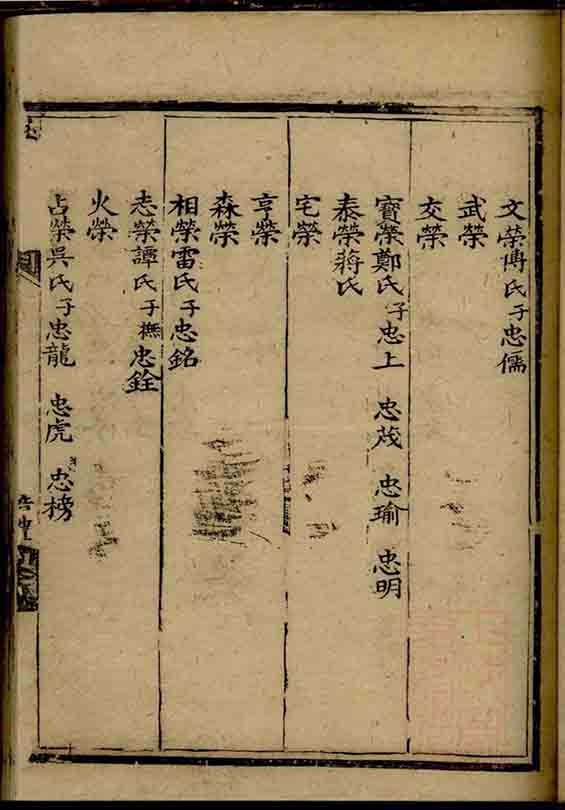 文榮傅氏子忠儒
武榮
交榮
寶榮鄭氏子忠上 忠茂 忠瑜 忠明
泰榮蔣氏
宅榮
亨榮
森榮
相榮雷氏子忠銘
志榮譚氏子撫忠銓
火榮
占榮吳氏子忠龍 忠虎 忠榜